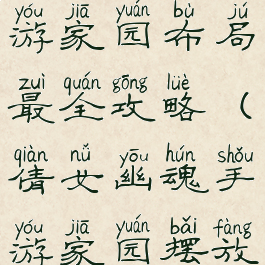 yóu jiā yuán bù jú
游家园布局
zuì quán gōng lüè
最全攻略（
qiàn nǚ yōu hún shǒu
倩女幽魂手
yóu jiā yuán bǎi fàng
游家园摆放